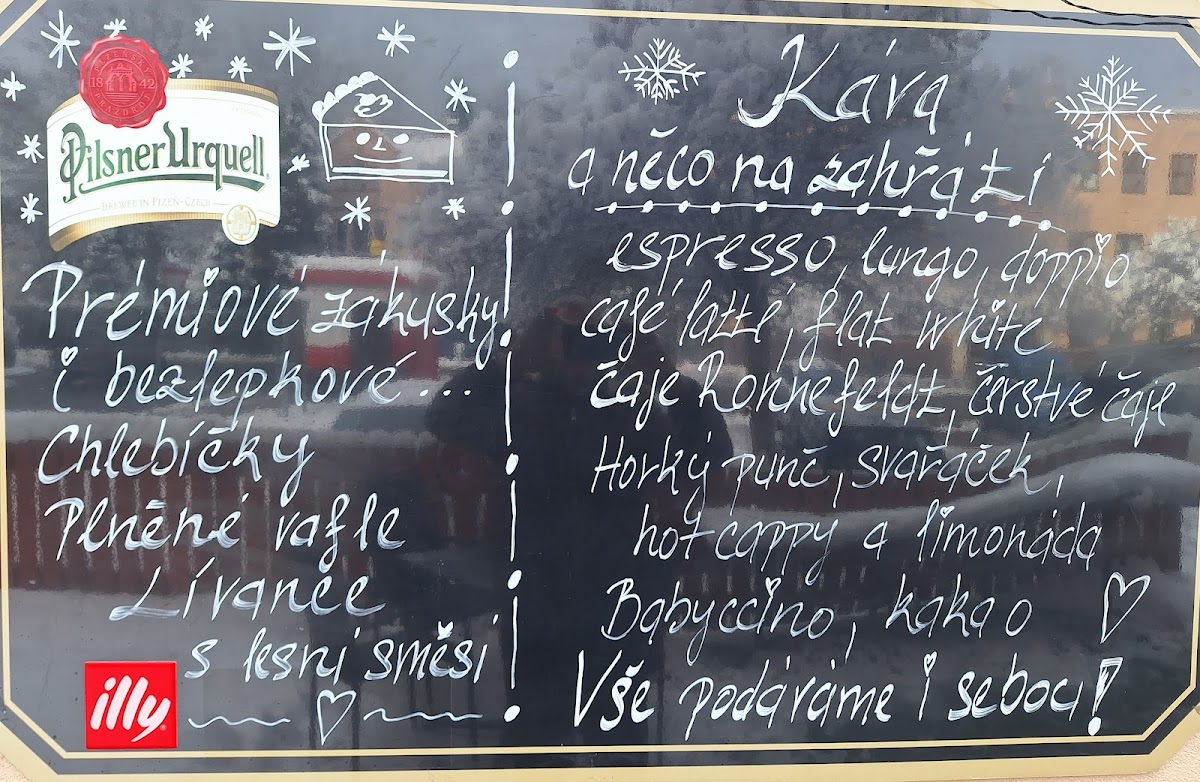 PLZEŇSKÝ
1842
PRAZDROJ
Pilsner Urquell
BREWED IN PLZEŇ · CZECH
Prémiové zákusky
i bezlepkové...
Chlebíčky
Plněné vafle
Lívance
s lesní směsí
illy
Káva
a něco na zahřátí
espresso, lungo, doppio
café latté, flat white
čaje Ronnefeldt, čerstvé čaje
Horký punč, svařáček,
hot cappy a limonáda
Babyccino, kakao
Vše podáváme i sebou!